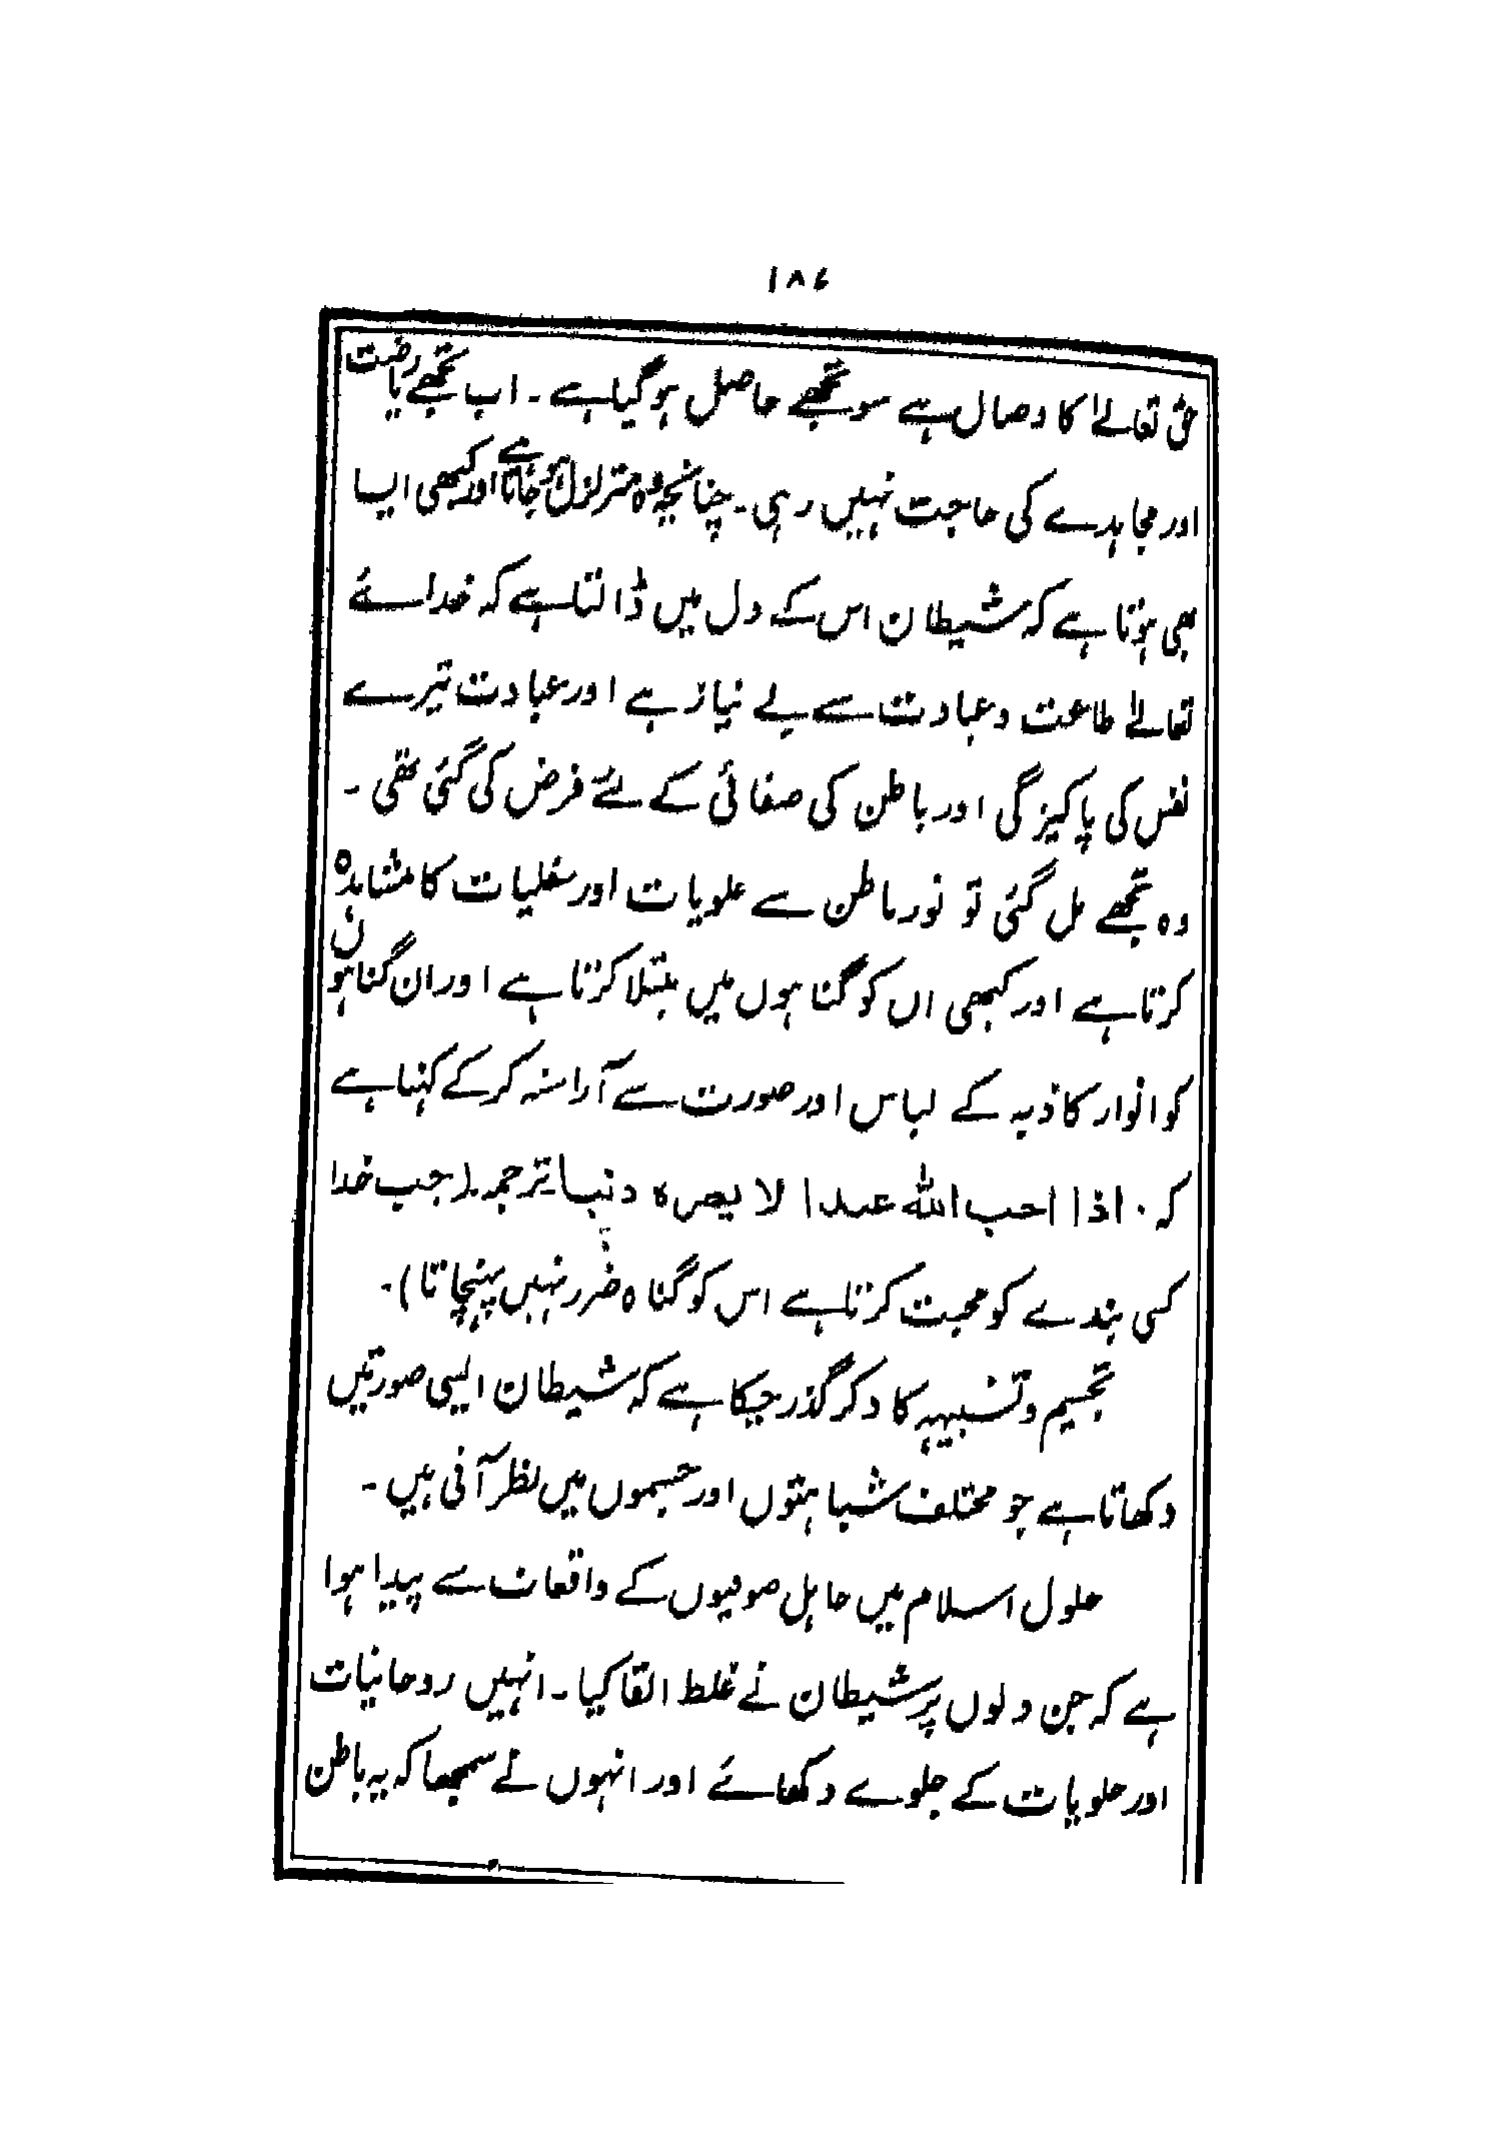 ۱۸۶
حق تعالےٰ کا وصال ہے سو تجھے حاصل ہو گیا ہے ۔ اب تجھے ریاضت
اور مجاہدے کی حاجت نہیں رہی ۔ چنانچہ وہ متزلزل ہو جاتا ہے اور کبھی ایسا
بھی ہوتا ہے کہ شیطان اس کے دل میں ڈالتا ہے کہ خدائے
تعالےٰ طاعت و عبادت سے بے نیاز ہے اور عبادت تیرے
نفس کی پاکیزگی اور باطن کی صفائی کے لئے فرض کی گئی تھی ۔
وہ تجھے مل گئی تو نور باطن سے علویات اور سفلیات کا مشاہدہ
کرتا ہے اور کبھی اس کو گناہوں میں مبتلا کرتا ہے اور ان گناہوں
کو انوار کاذبہ کے لباس اور صورت سے آراستہ کر کے کہتا ہے
کہ ۰ اذا احب الله عبدا لا یضره ذنب ترجمہ ۔ ( جب خدا
کسی بندے کو محبت کرتا ہے اس کو گناہ ضرر نہیں پہنچاتا ) ۔
تجسیم و تشبیہہ کا ذکر گذر چکا ہے کہ شیطان ایسی صورتیں
دکھاتا ہے جو مختلف شباہتوں اور جسموں میں نظر آتی ہیں ۔
حلول اسلام میں جاہل صوفیوں کے واقعات سے پیدا ہوا
ہے کہ جن دلوں پر شیطان نے غلط القا کیا ۔ انہیں روحانیات
اور علویات کے جلوے دکھائے اور انہوں نے سمجھا کہ یہ باطن